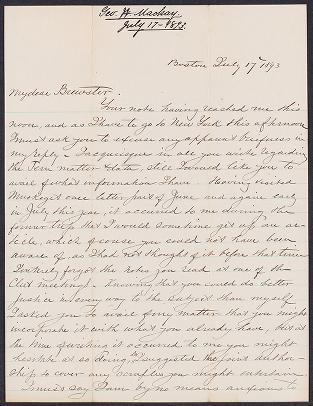 Geo. H. Mackay
July 17-1893.
Boston July 17th 1893
My dear Brewster.
Your note having reached me this
noon, and as I have to go to New York this afternoon
I must ask you to excuse any apparent briefness in
my reply - I acquiesce in all you write regarding
the Tern matter & data, still I would like you to
avail of what information I have. Having visited
Muskeget once latter part of June and again early
in July this year, it occurred to me during the
former trip that I would sometime get up an ar-
ticle, which of course you could not have been
aware of, as I had not thought of it before that time
I entirely forgot the notes you read at one of the
Club meetings. Knowing that you could do better
justice in every way to the subject than myself
I asked you to avail of my matter that you might
incorporate it with what you already have, but at
the time of writing it occurred to me you might
hesitate at so doing, I suggested the joint author-
ship to cover any scruples you might entertain
I must say I am by no means anxious to